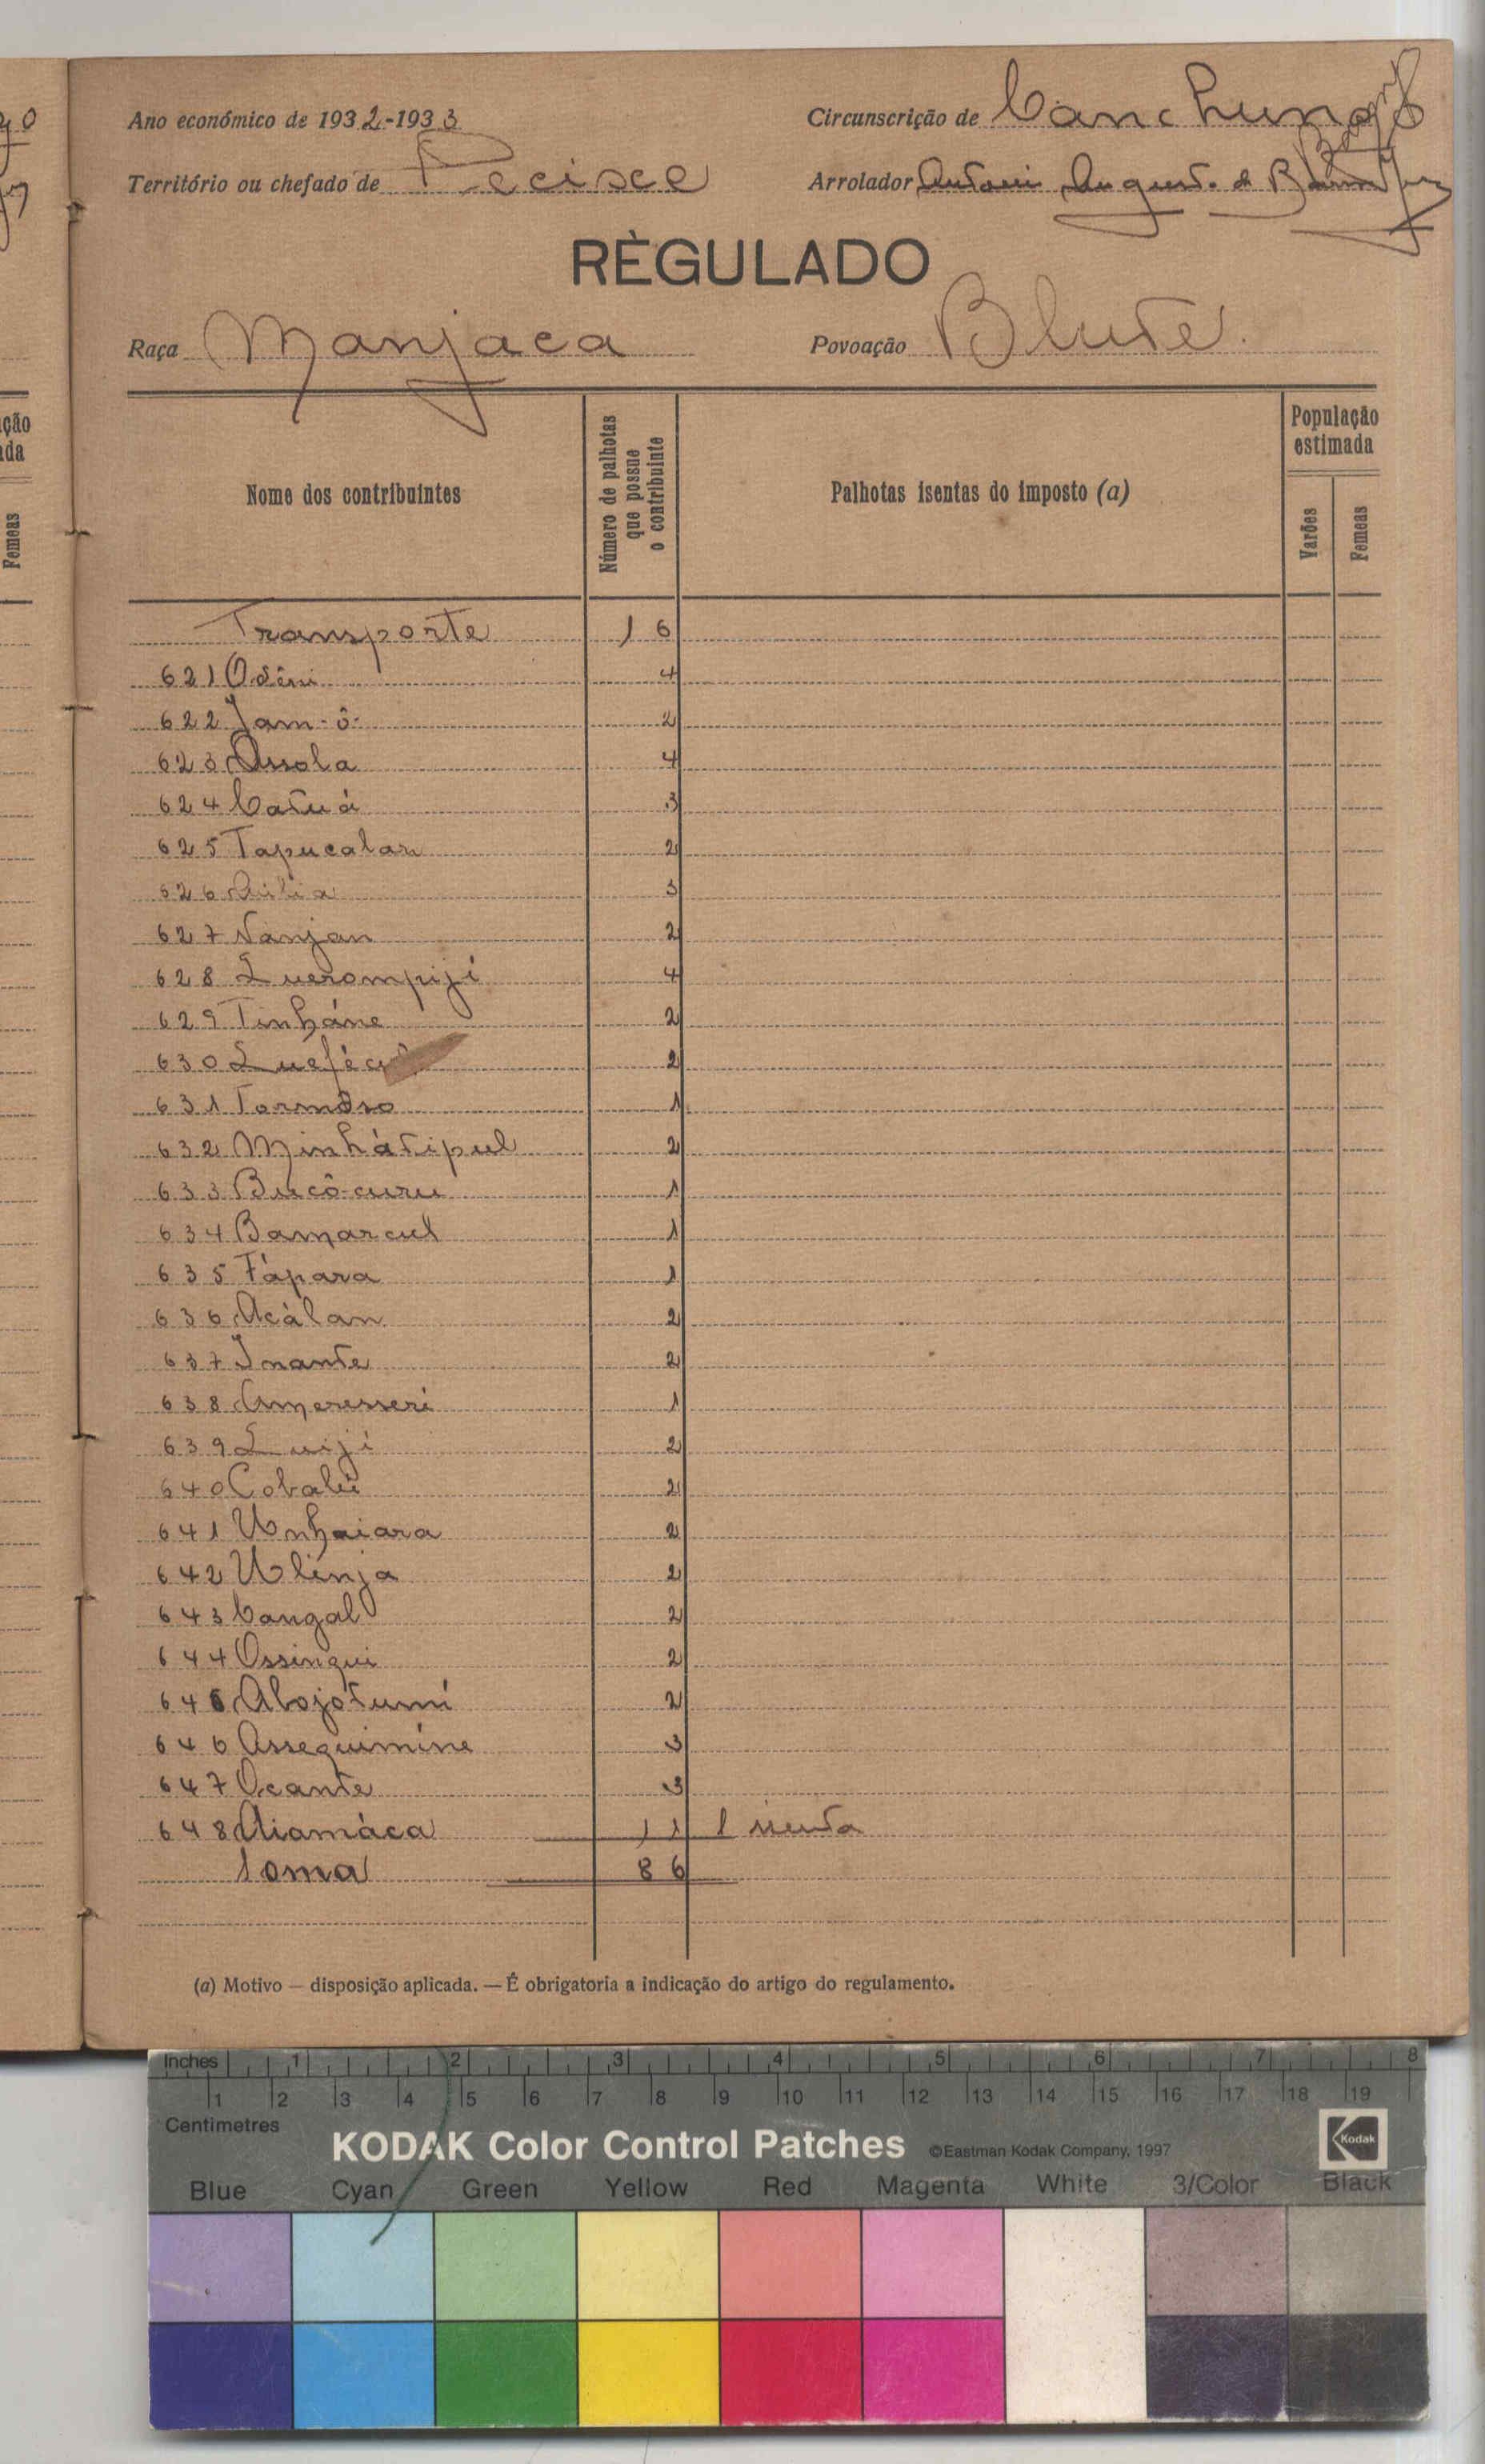 Ano económico de 1932-1933
Circunscrição de Canchungo
Território ou chefado de Pecisce
Arrolador Antonio Augusto de Barros
RÈGULADO
Raça Manjaca
Povoação Blute
Nome dos contribuintes
Número de palhotas que possue o contribuinte
Palhotas isentas do imposto (a)
População estimada
Varões
Femeas
Transporte 16
621 Odêni 4
622 Jam-ô 2
623 Assola 4
624 Catuá 3
625 Tapucalan 2
626 3
627 Nanjan 2
628 Luerompijí 4
629 Tinháne 2
630 2
631 1
632 Minhàtipul 2
633 Bucô-curu 1
634 Bamarcul 1
635 Fápara 1
636 Acàlan 2
637 Inante 2
638 Ameresseri 1
639 Luiji 2
640 Cobalú 2
641 Unhaiara 2
642 Ulinja 2
643 Cangal 2
644 Ossinqui 2
645 Abojótumí 2
646 Assequimíne 3
647 Ocante 3
648 Aiamáca 11 1 isenta
Soma 86
(a) Motivo — disposição aplicada. — É obrigatoria a indicação do artigo do regulamento.
ção
da
Femeas
Inches 1 2 3 4 5 6 7 8
1 2 3 4 5 6 7 8 9 10 11 12 13 14 15 16 17 18 19
Centimetres
KODAK Color Control Patches ©Eastman Kodak Company, 1997 Kodak
Blue Cyan Green Yellow Red Magenta White 3/Color Black